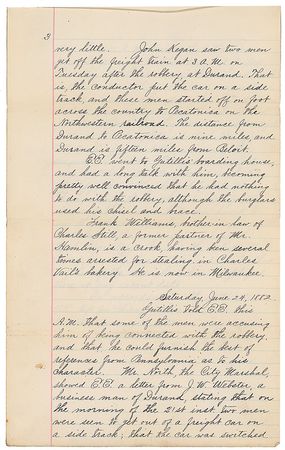 3
very little. John Regan saw two men
get off the freight train at 3 A.M. on
Tuesday after the robbery at Durand. That
is, the conductor put the car on a side
track, and these men started off on foot
across the country to Pecatonica on the
Northwestern railroad. The distance from
Durand to Pecatonica is nine miles, and
Durand is fifteen miles from Beloit.
E.E. went to Gutelle's boarding house,
and had a long talk with him, becoming
pretty well convinced that he had nothing
to do with the robbery, although the burglars
used his chisel and brace.
Frank Williams, brother in law of
Charles Stell, a former partner of Mr.
Hamlin, is a crook, having been several
times arrested for stealing in Charles
Vail's bakery. He is now in Milwaukee.
Saturday June 24, 1882.
Gutelles told E.E. this
A.M. that some of the men were accusing
him of being connected with the robbery,
and that he could furnish the best of
references from Pennsylvania as to his
character. Mr. North the City Marshal,
showed E.E. a letter from J. W. Webster, a
business man of Durand, stating that on
the morning of the 21st inst two men
were seen to get out of a freight car on
a side track; that the car was switched